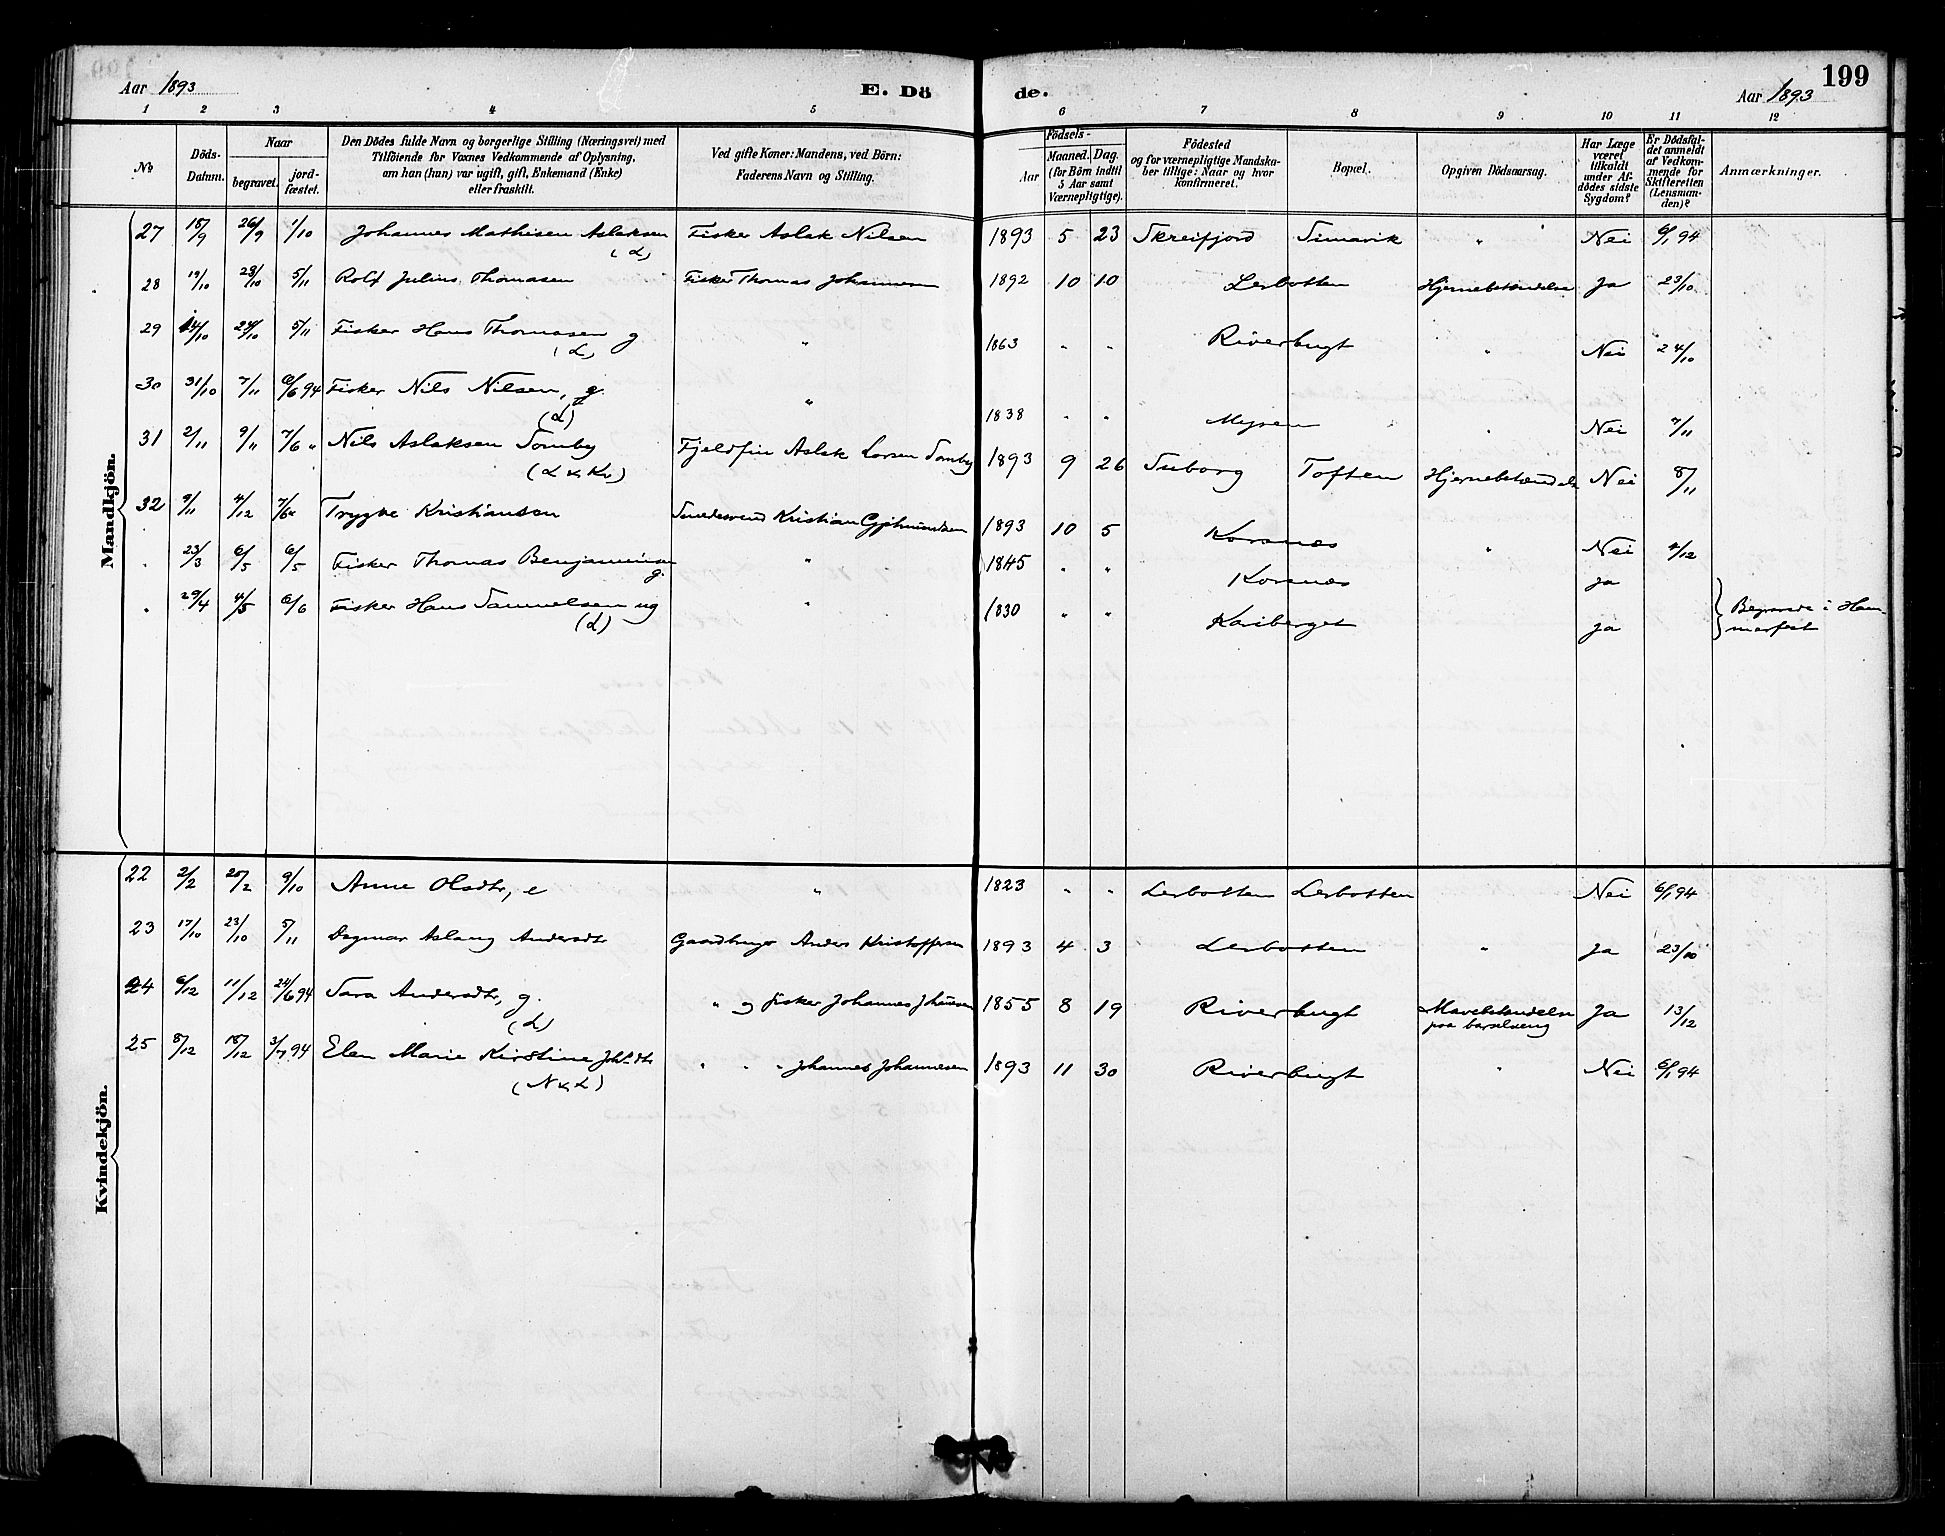 199
Aar 1893 E. Dö de. Aar 1893
1 2 3 4 5 6 7 8 9 10 11 12
No
Döds-Datum.
Naar
begravet.
jord-fæstet.
Den Dödes fulde Navn og borgerlige Stilling (Næringsvei) med
Tilföiende for Voxnes Vedkommende af Oplysning,
om han (hun) var ugift, gift, Enkemand (Enke)
eller fraskilt.
Ved gifte Koner: Mandens, ved Börn:
Faderens Navn og Stilling.
Födsels-
Aar
Maaned. Dag.
(for Börn indtil
5 Aar samt
Værnepligtige).
Födested
og for værnepligtige Mandska-
ber tillige: Naar og hvor
konfirmeret.
Bopæl.
Opgiven Dödsaarsag.
Har Læge
været
tilkaldt
under Af-
dödes sidste
Sygdom?
Er Dödsfal-
det anmeldt
af Vedkom-
mende for
Skifteretten
(Lensman-
den)?
Anmærkninger.
Mandkjön.
27 18/9 26/9 1/10 Johannes Mathisen Aslaksen Fisker Aslak Nilsen 1893 5 23 Skreifjord Simavik " Nei 6/1 94
(L)
28 19/10 23/10 5/11 Rolf Julius Thomasen Fisker Thomas Johannesen 1892 10 10 Lerbotten Hjernebetændelse Ja 23/10
29 14/10 24/10 5/11 Fisker Hans Thomasen g " 1863 " " Riverbugt " Nei 24/10
(L)
30 31/10 7/11 6/6 94 Fisker Nils Nilsen, g. " 1838 " " Myren " Nei 7/11
(L)
31 2/11 9/11 7/6 " Nils Aslaksen Somby Fjeldfin Aslak Larsen Somby 1893 9 26 Suborg Toften Hjernebetændelse Nei 8/11
(L & Kv)
32 9/11 4/12 7/6 " Trygve Kristiansen Smedesvend Kristian 1893 10 5 Korsnes " Nei 4/12
" 23/3 6/5 6/5 Fisker Thomas Benjaminsen g. " 1845 " " Korsnes Ja
" 29/4 4/5 6/6 Fisker Hans Samuelsen ug " 1830 " " Kariberget Ja Begravede i Ham-
(L) merfest
Kvindekjön.
22 2/2 25/2 9/10 Anne Olsdtr, e " 1823 " " Lerbotten Lerbotten Nei 6/1 94
23 17/10 23/10 5/11 Dagmar Aslaug Andersdtr Gaardbruger Anders Kristoffersen 1893 4 3 Lerbotten " Ja 23/10
24 6/12 11/12 24/6 94 Sara Andersdtr, g. " g fisker Johannes Johannesen 1855 8 19 Riverbugt Mavebetændelse Ja 13/12
(L) paa barselseng
25 8/12 18/12 3/7 94 Elen Marie Kirstine Johsdtr " " " Johannes Johannesen 1893 11 30 Riverbugt " Nei 6/1 94
(N & L)